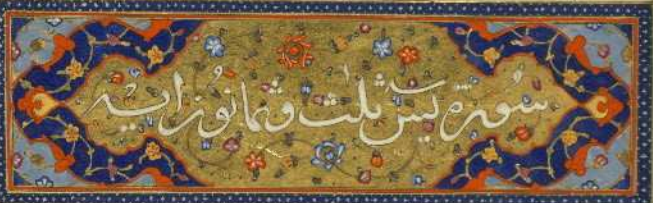 سورة يس ثلث وثمانون اية